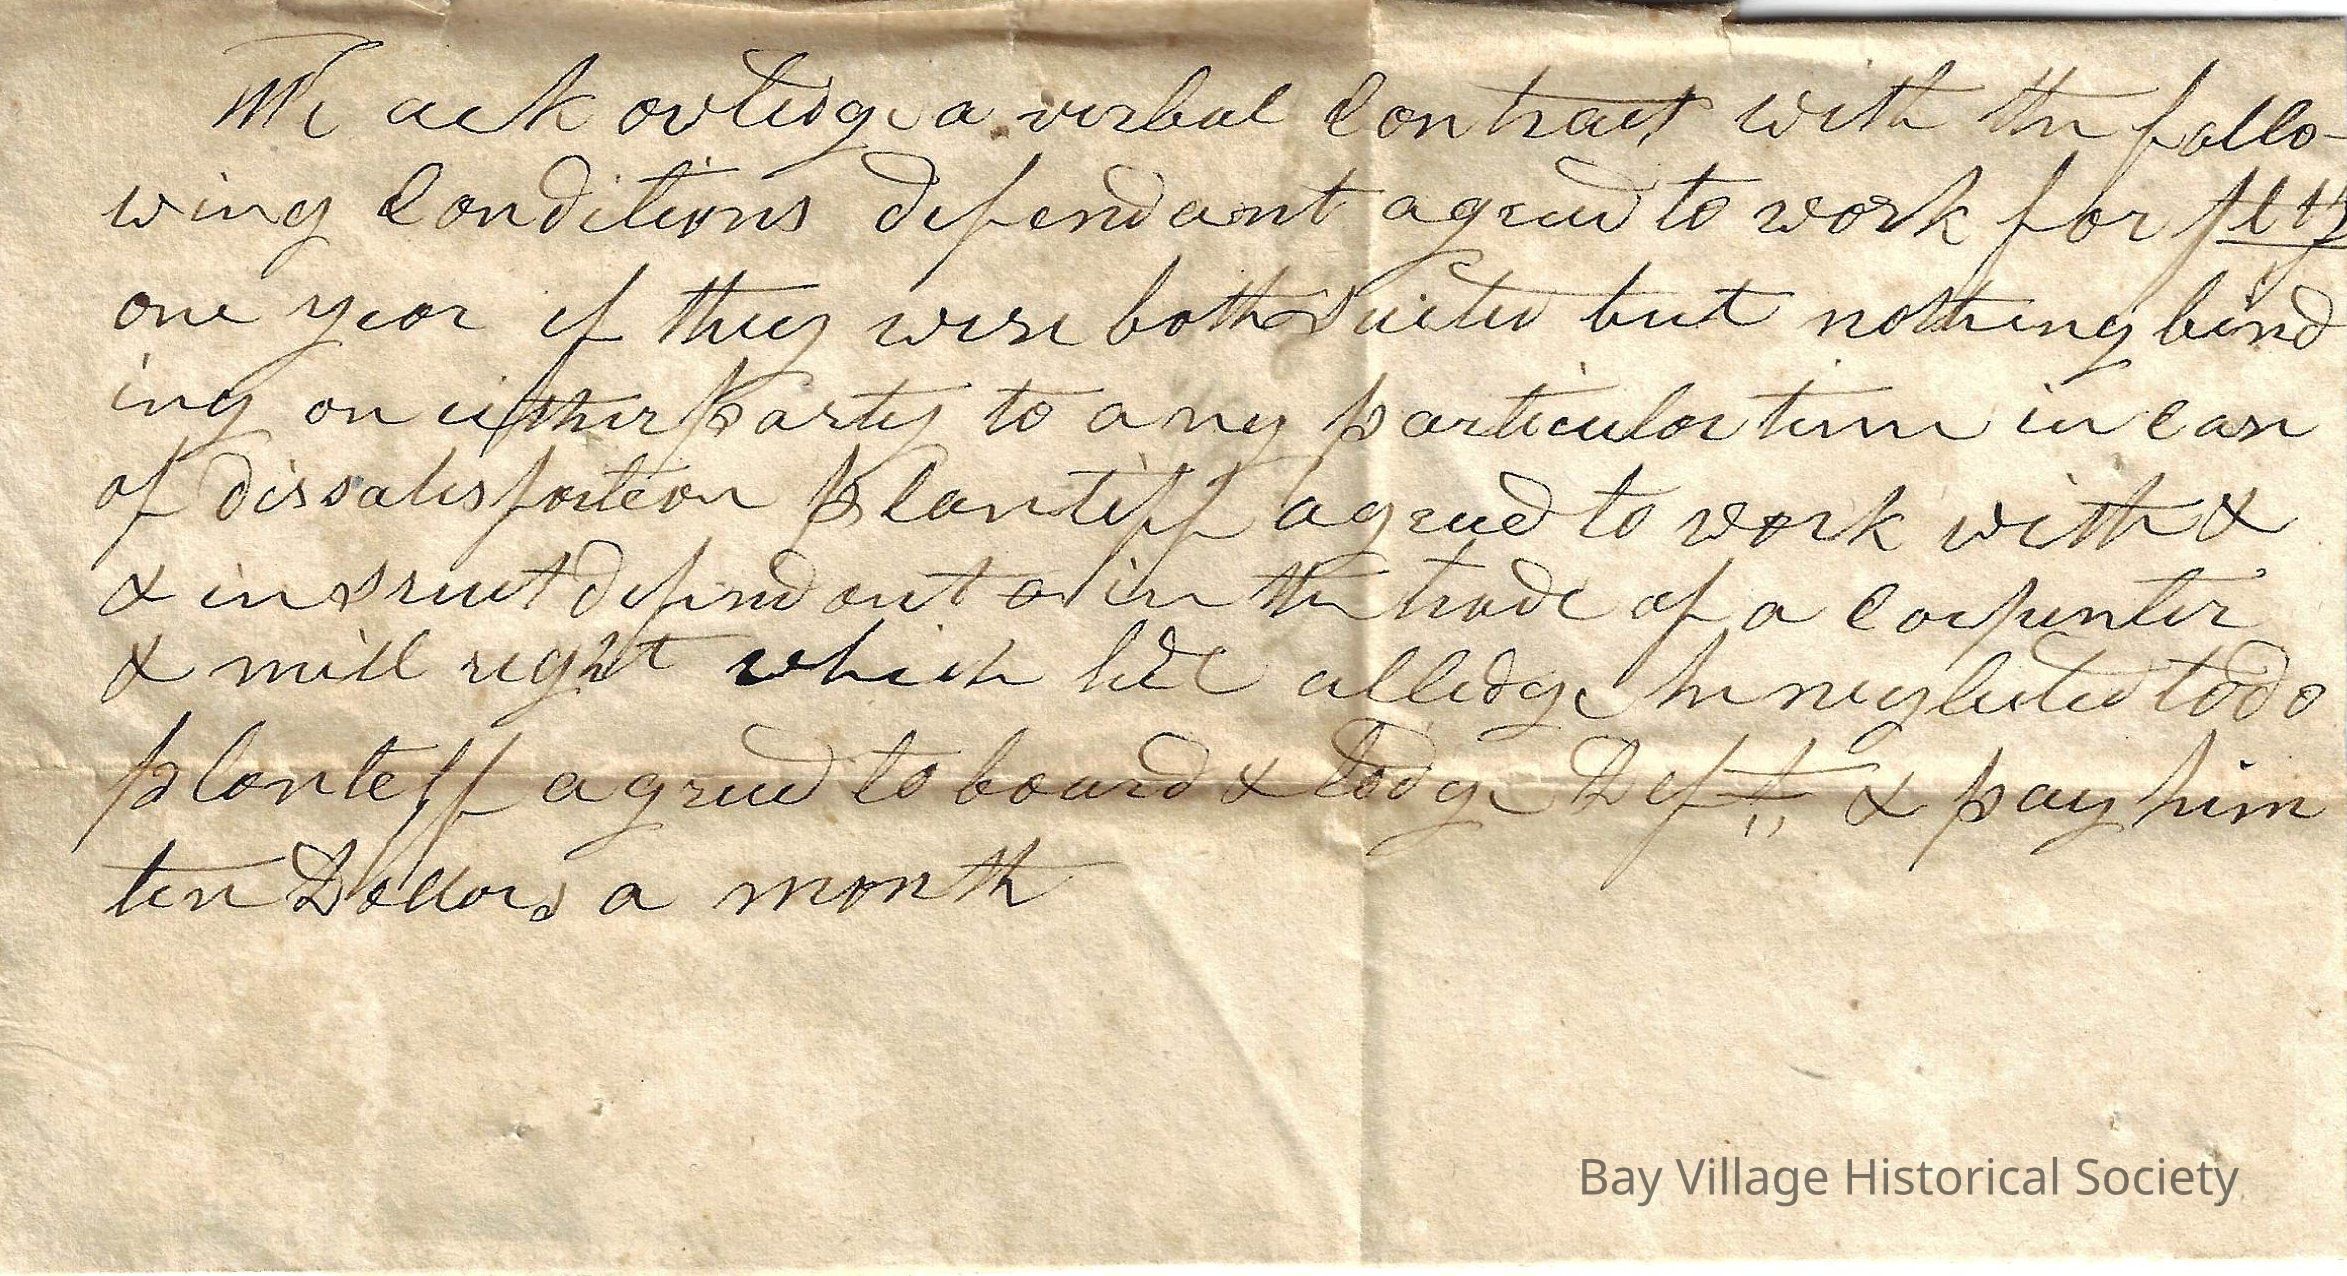 We acknowledge a verbal Contract with the follo-
wing Conditions defendant agreed to work for pltff
one year if they were both Suited but nothing bind
ing on either Party to any particular time in case
of dissatisfaction Plantiff agreed to work with &
& instruct defendant in the trade of a Carpenter
& mill right which he alledge he neglected to do
plantiff agreed to board & lodge Deft & pay him
ten Dollars a month
Bay Village Historical Society